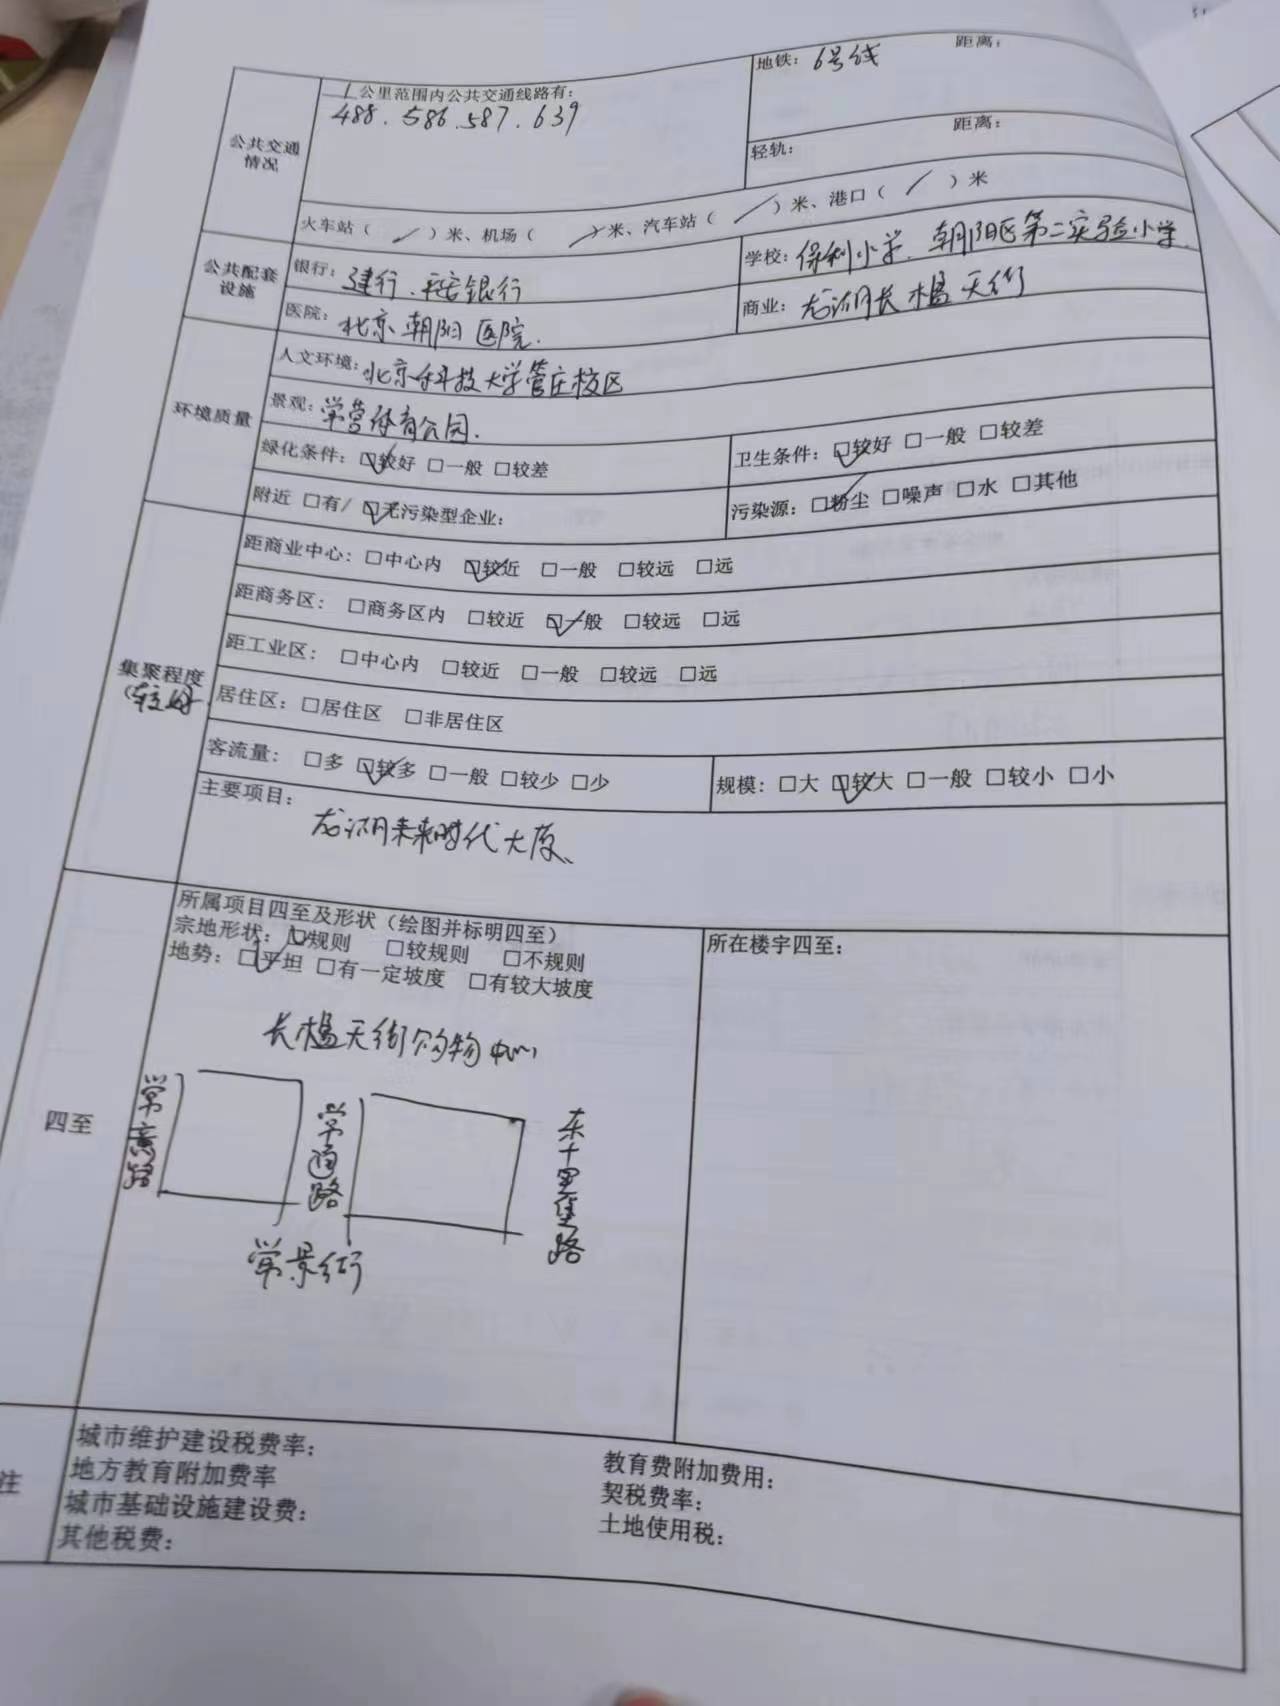 距离：
地铁：6号线
1公里范围内公共交通线路有：
488、586、587、639
公共交通
情况
距离：
轻轨：
火车站（ / ）米、机场（ / ）米、汽车站（ / ）米、港口（ / ）米
公共配套
设施
银行：建行、平安银行
学校：保利小学、朝阳区第二实验小学
医院：北京朝阳医院.
商业：龙湖长楹天街
环境质量
人文环境：北京科技大学管庄校区
景观：常营体育公园.
绿化条件：☑较好 □一般 □较差
卫生条件：☑较好 □一般 □较差
附近 □有/ ☑无污染型企业：
污染源：□粉尘 □噪声 □水 □其他
集聚程度
（较好
距商业中心：□中心内 ☑较近 □一般 □较远 □远
距商务区： □商务区内 □较近 ☑一般 □较远 □远
距工业区： □中心内 □较近 □一般 □较远 □远
居住区：□居住区 □非居住区
客流量： □多 ☑较多 □一般 □较少 □少
规模：□大 ☑较大 □一般 □较小 □小
主要项目：
龙湖未来时代大厦、
四至
所属项目四至及形状（绘图并标明四至）
宗地形状：☑规则 □较规则 □不规则
地势：☑平坦 □有一定坡度 □有较大坡度
所在楼宇四至：
长楹天街购物中心
常意路
常通路
东十里堡路
常景街
注
城市维护建设税费率：
地方教育附加费率
城市基础设施建设费：
其他税费：
教育费附加费用：
契税费率：
土地使用税：